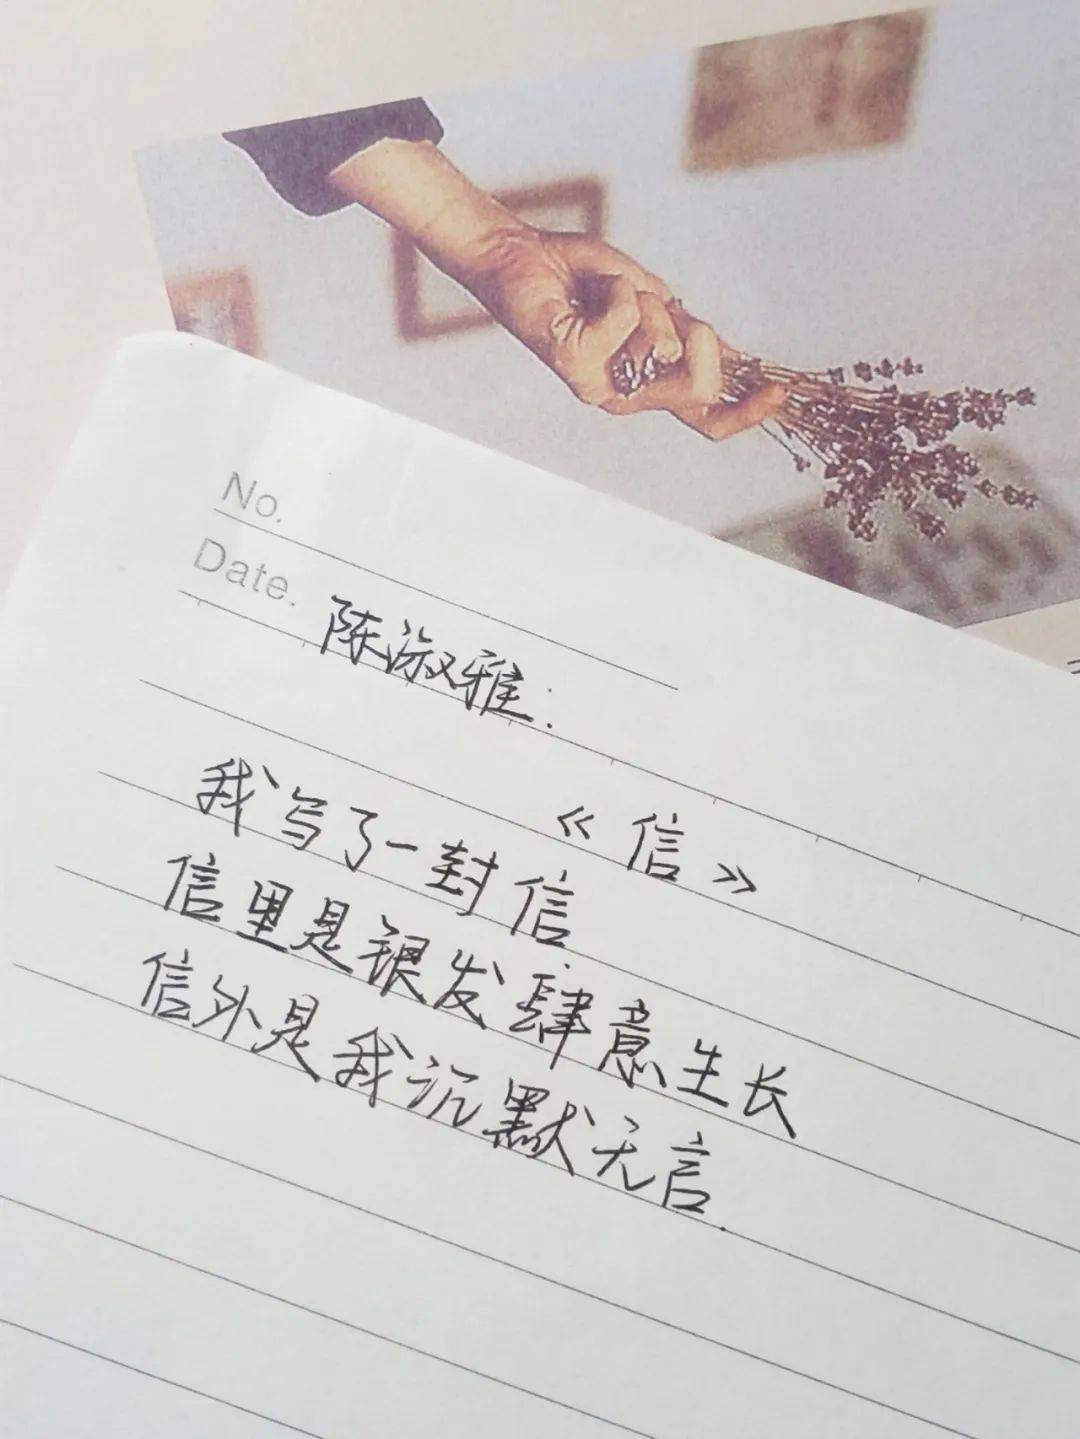 No.
Date.
陈淑雅:
《信》
我写了一封信
信里是银发肆意生长
信外是我沉默无言.